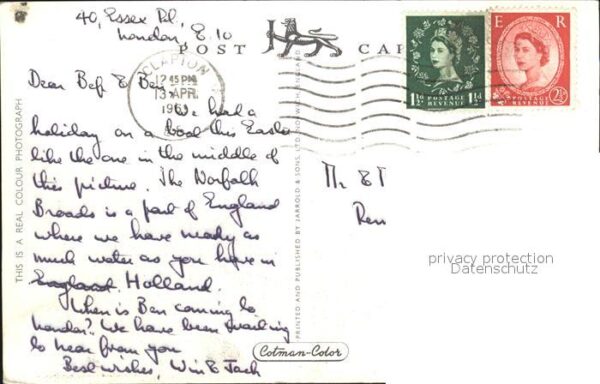 40, Essex Rd.,
London, E.10
POST CAR
Dear Bep & Ben,
We had a
holiday on a boat this Easter
like the one in the middle of
this picture. The Norfolk
Broads is a part of England
where we have nearly as
much water as you have in
England Holland.
When is Ben coming to
London? We have been waiting
to hear from you
Best wishes, Win & Jack
CLAPTON
12 45 PM
13 APR
196
E.5
POSTAGE
REVENUE
1½ 1½d
E R
POSTAGE
REVENUE
2½
Mr &
Ren
THIS IS A REAL COLOUR PHOTOGRAPH
PRINTED AND PUBLISHED BY JARROLD & SONS, LTD
Cotman-Color
privacy protection
Datenschutz